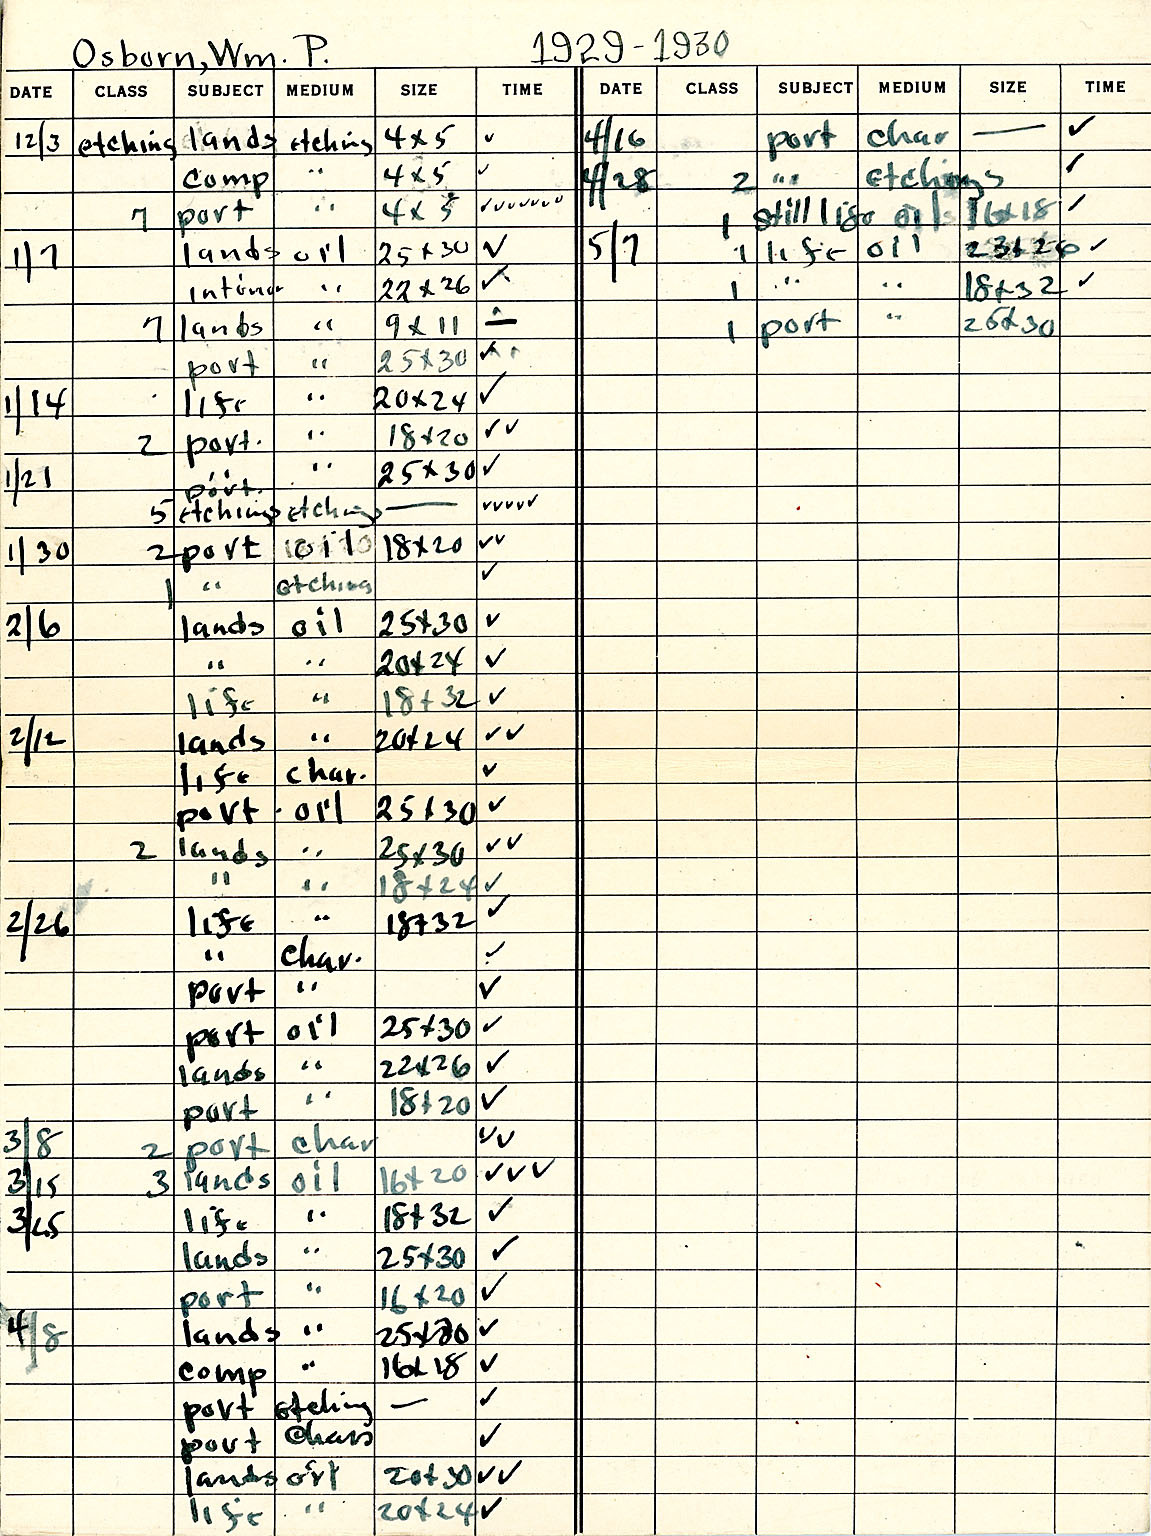 Osborn, Wm. P. 1929-1930
DATE CLASS SUBJECT MEDIUM SIZE TIME DATE CLASS SUBJECT MEDIUM SIZE TIME
12/3 etching lands etching 4x5 ✓
comp " 4x5 ✓
7 port " 4x5 ✓✓✓✓✓✓✓
1/7 lands oil 25x30 ✓
interior " 22x26 ✓
7 lands " 9x11
port " 25x30
1/14 life " 20x24 ✓
2 port. " 18x20 ✓✓
1/21 port. " 25x30 ✓
5 etchings etchings — ✓✓✓✓✓
1/30 2 port oil 18x20 ✓✓
1 " etching ✓
2/6 lands oil 25x30 ✓
" " 20x24 ✓
life " 18x32 ✓
2/12 lands " 20x24 ✓✓
life char. ✓
port. oil 25x30 ✓
2 lands " 25x30 ✓✓
" " 18x24 ✓
2/26 life " 18x32 ✓
" char. ✓
port " ✓
port oil 25x30 ✓
lands " 22x26 ✓
port " 18x20 ✓
3/8 2 port char ✓✓
3/15 3 lands oil 16x20 ✓✓✓
3/25 life " 18x32 ✓
lands " 25x30 ✓
port " 16x20 ✓
4/8 lands " 25x30 ✓
comp " 16x18 ✓
port etching — ✓
port ✓
lands oil 20x30 ✓✓
life " 20x24 ✓
4/16 port char — ✓
4/28 2 " etchings ✓
1 still life oils 16x18 ✓
5/7 1 life oil 23x26 ✓
1 " " 18x32 ✓
1 port " 26x30